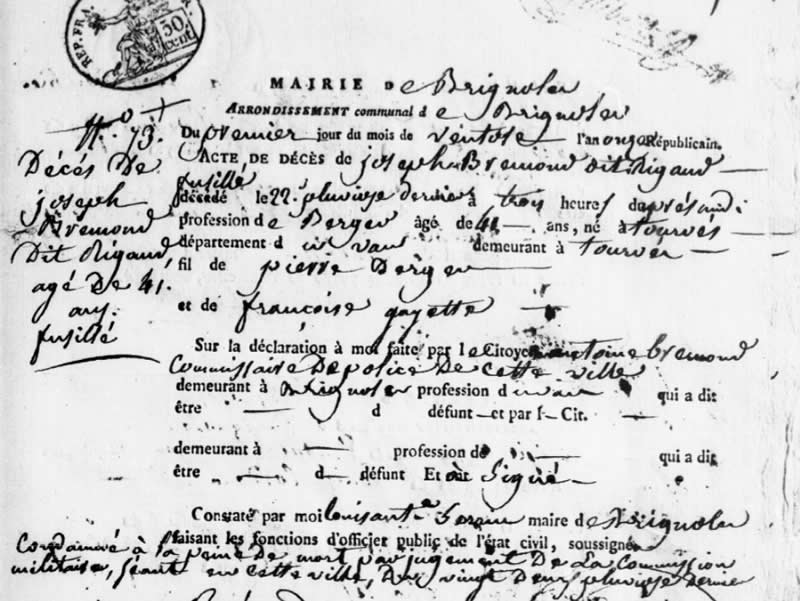 REP. FRA.
50. cent.
MAIRIE De Brignoles
ARRONDISSEMENT communal de Brignoles
N.° 73.
Du premier jour du mois de ventose l'an onze Républicain.
Décés De joseph Brémond Dit Rigaud, agé De 41. ans. fusillé
ACTE DE DÉCÈS de joseph Bremond dit Rigaud —
fusillé
décédé le 22. pluviose dernier à trois heures daprésmidi
profession de Berger âgé de 41 — ans, né à tourves —
département du var demeurant à tourves —
fil de pierre Berger —
et de françoise gayette —
Sur la déclaration à moi faite par le Citoyen antoine bremond
Commissaire De police De cette ville
demeurant à Brignoles profession d qui a dit
être — d défunt — et par l— Cit. —
demeurant à — profession de qui a dit
être — d— défunt Et ont Signé —
Constaté par moi louis ant.e maire de Brignoles
faisant les fonctions d'officier public de l'état civil, soussigné.
Condamné à la peine De mort par jugement De La Commission
militaire, séant en cette ville, Du vingt deux pluviose dernier